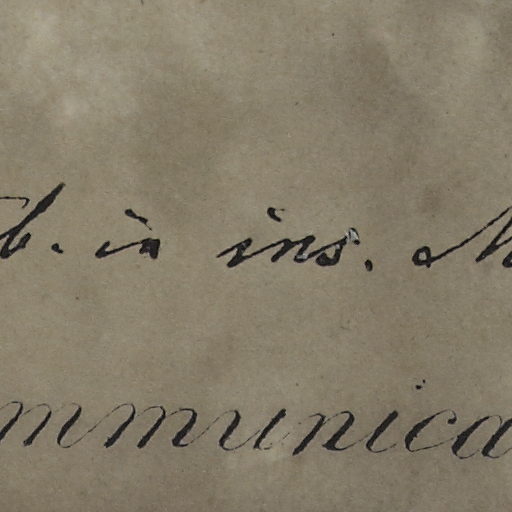 b. in ins. M
mmunica